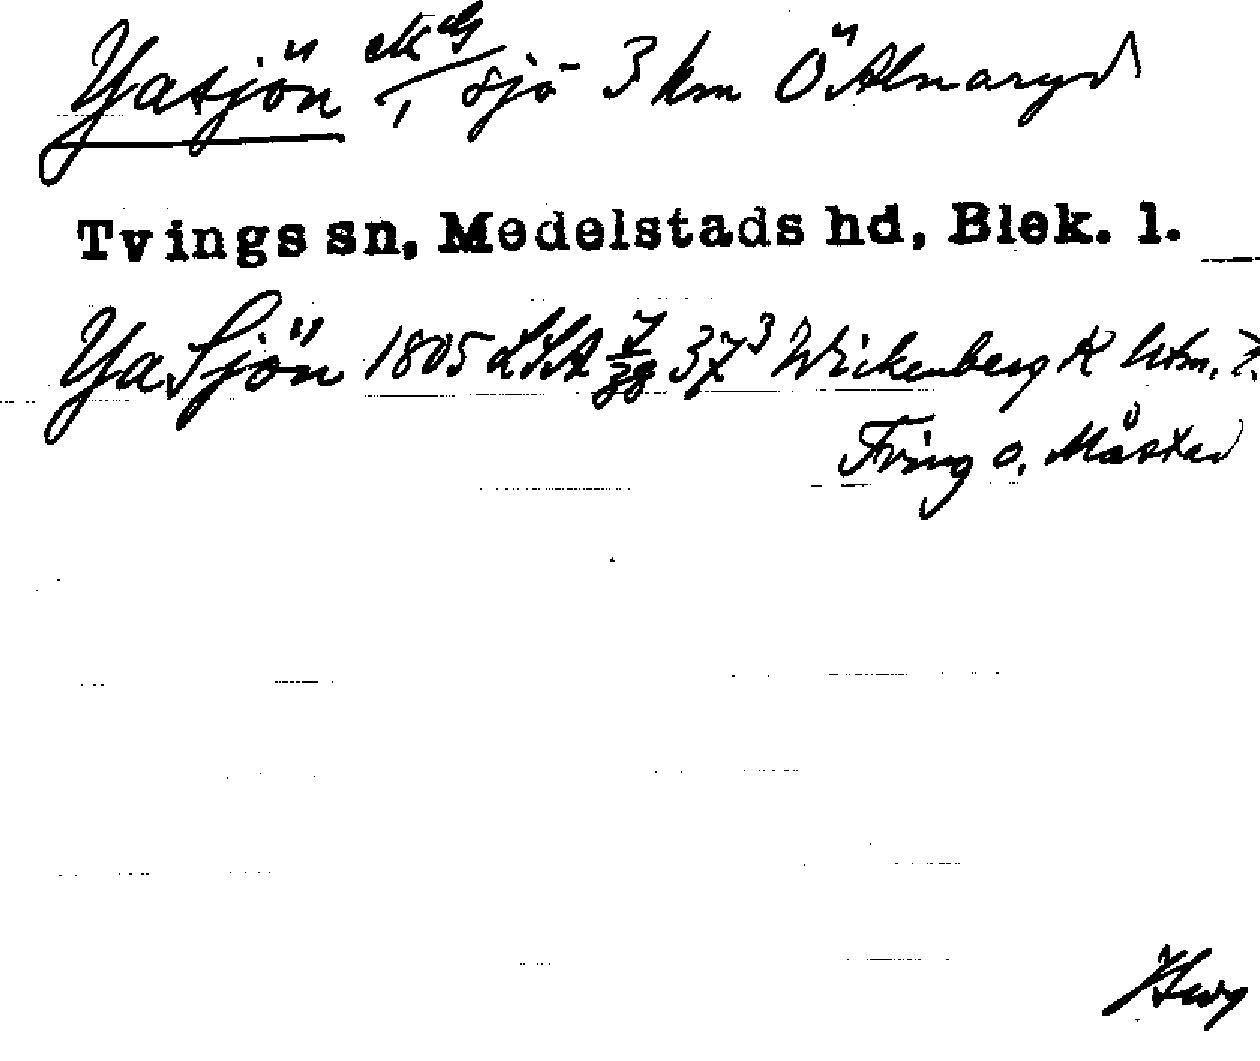 Yasjön sjö 3 km Ö Alnaryd
Tvings sn, Medelstads hd, Blek. l.
Ya Sjön 1805 LSA 37³ Wickenberg K
Tving o. Måstad